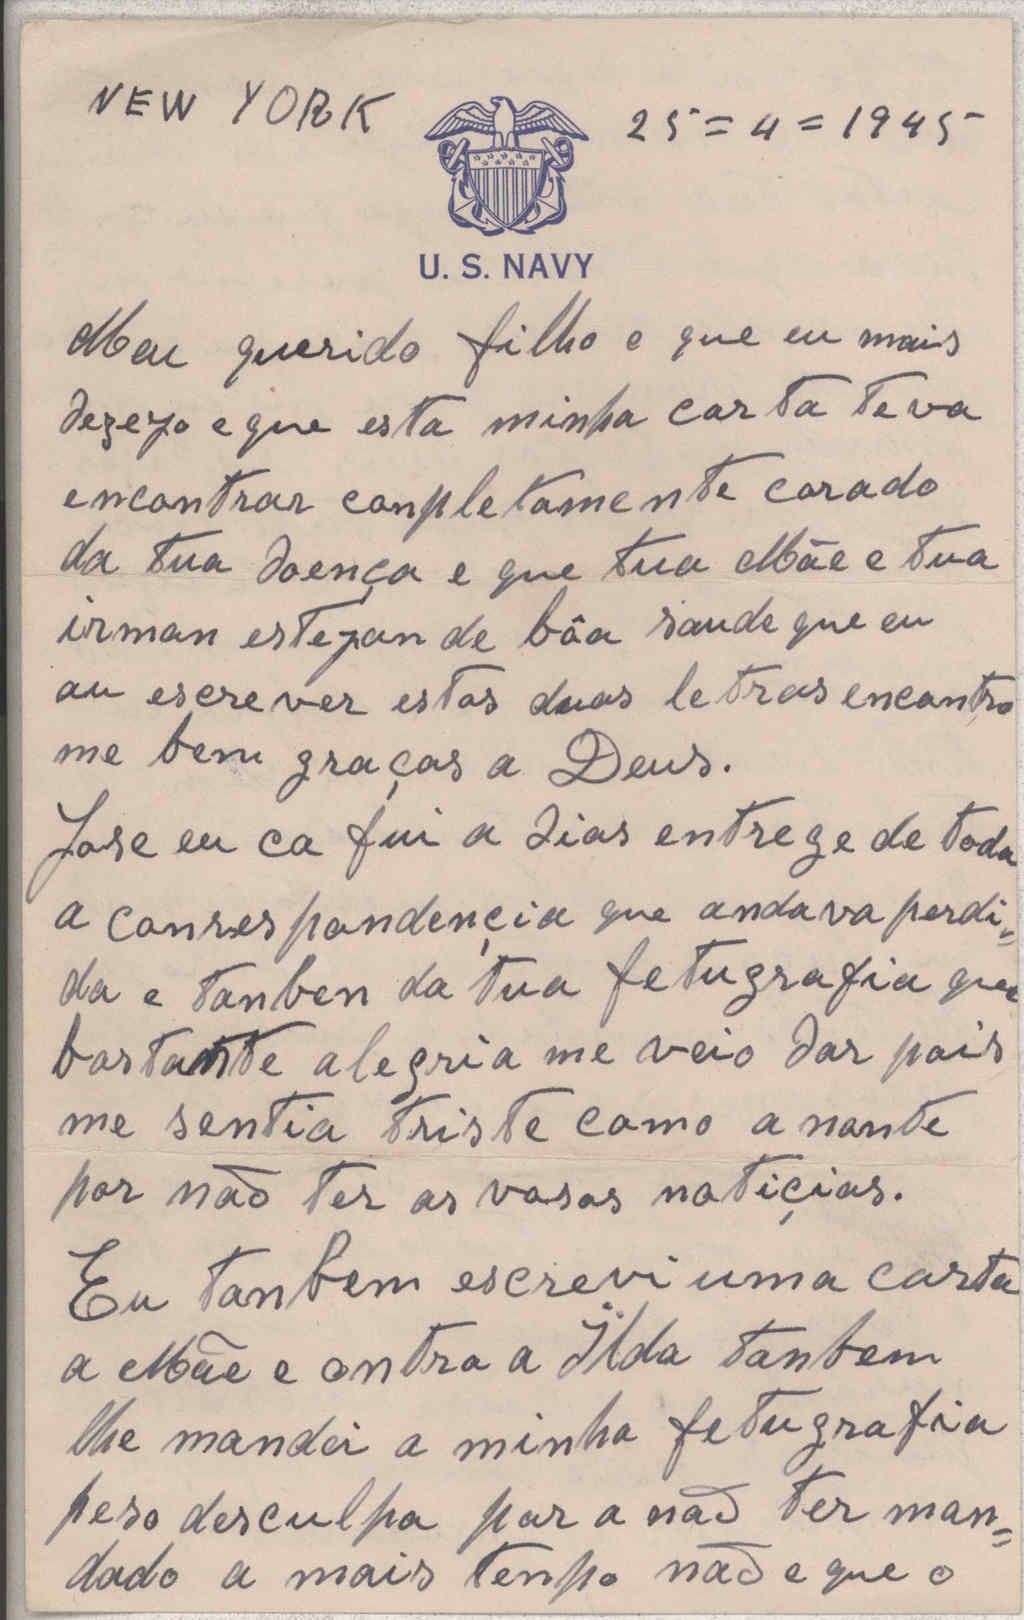 NEW YORK 25=4=1945
U. S. NAVY
Meu querido filho o que eu mais
dezejo e que esta minha carta te va
encontrar conpletamente corado
da tua doença e que tua Mãe e tua
irman estejan de bôa saude que eu
au escrever estas duas letras encontro
me bem graças a Deus.
Jose eu ca fui a dias entrege de toda
a conrespondençia que andava perdi=
da e tanben da tua fetugrafia que
bastante alegria me veio dar pois
me sentia triste como a nonte
por não ter as vosas notiçias.
Eu tanbem escrevi uma carta
a Mãe e ontra a Ilda tanbem
lhe mandei a minha fetugrafia
peso desculpa por a não ter man=
dado a mais tenpo não e que o